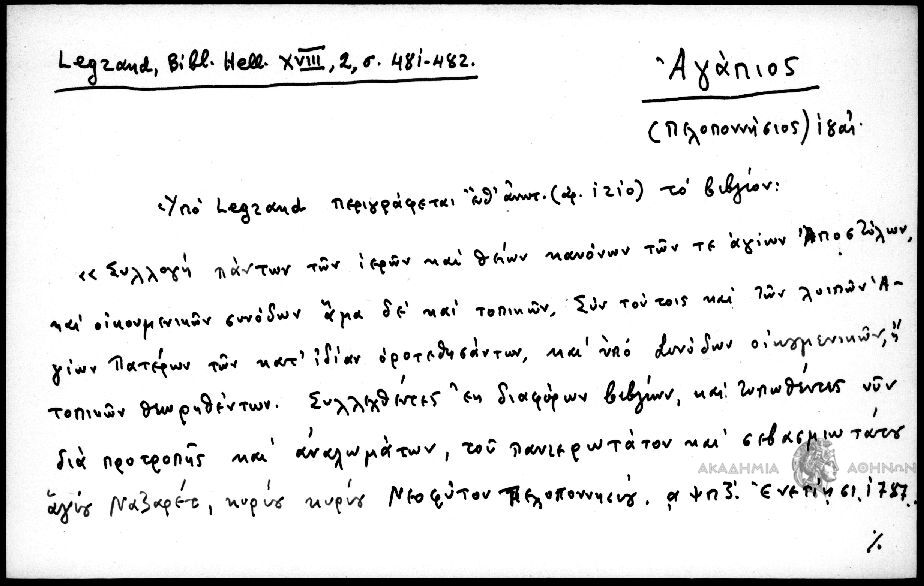 Legrand, Bibl. Hell. XVIII, 2, σ. 481-482.
Ἀγάπιος
(Πελοποννήσιος) ἱ
Ὑπό Legrand περιγράφεται ὑπ' (ἀρ. 1210) τό βιβλίον:
«Συλλογή πάντων τῶν ἱερῶν καί θείων κανόνων τῶν τε ἁγίων Ἀποστόλων,
καί οἰκουμενικῶν συνόδων ἅμα δέ καί τοπικῶν, Σύν τούτοις καί τῶν λοιπῶν Ἁ-
γίων Πατέρων τῶν κατ' ἰδίαν ὁροτεθησάντων, καί ὑπό Συνόδων οἰκουμενικῶν, ἤ
τοπικῶν θεωρηθέντων. Συλλεχθέντες ἐκ διαφόρων βιβλίων, καί τυπωθέντες νῦν
διά προτροπῆς καί ἀναλωμάτων, τοῦ πανιερωτάτου καί σεβασμιωτάτου
ἁγίου Ναζαρέτ, κυρίου κυρίου Νεοφύτου Πελοποννησίου. αψπζ'. Ἐνετίῃσι, 1787.
ΑΚΑΔΗΜΙΑ ΑΘΗΝΩΝ
·/.